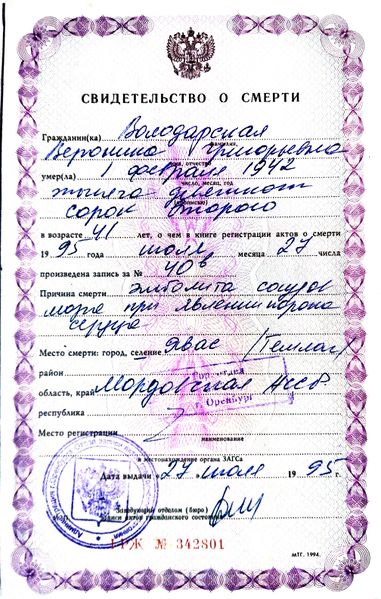 СВИДЕТЕЛЬСТВО О СМЕРТИ
Гражданин(ка) Володарская
фамилия,
Вероника Григорьевна
имя, отчество
умер(ла) 1 февраля 1942
число, месяц, год
тысяча девятьсот
сорок второго
в возрасте 41 лет, о чем в книге регистрации актов о смерти
1995 года июля месяца 27 числа
произведена запись за № 40в
Причина смерти
при явлении
сердца
Место смерти: город, селение Явас (Темлаг)
район
область, край Мордовская АССР
республика
г. Оренбург
Место регистрации
наименование
и местонахождение органа ЗАГСа
Дата выдачи «27» июля 1995 г.
Заведующий отделом (бюро)
записи актов гражданского состояния
РЖ № 342801
МТГ. 1994.